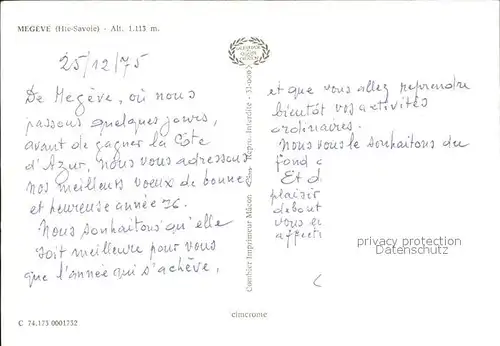 MEGÈVE (Hte-Savoie) - Alt. 1.113 m.
25/12/75
De Megève, où nous
passons quelques jours,
avant de gagner la Côte
d'Azur, nous vous adressons
nos meilleurs voeux de bonne
et heureuse année 76.
Nous souhaitons qu'elle
soit meilleure pour vous
que l'année qui s'achève,
C 74.173 0001732
Combier Imprimeur Mâcon
Repro. Interdite
cimcrome
et que vous allez reprendre
bientôt vos activités
ordinaires.
Nous vous le souhaitons du
fond
Et d
plaisir
debout
vous
affect
privacy protection
Datenschutz